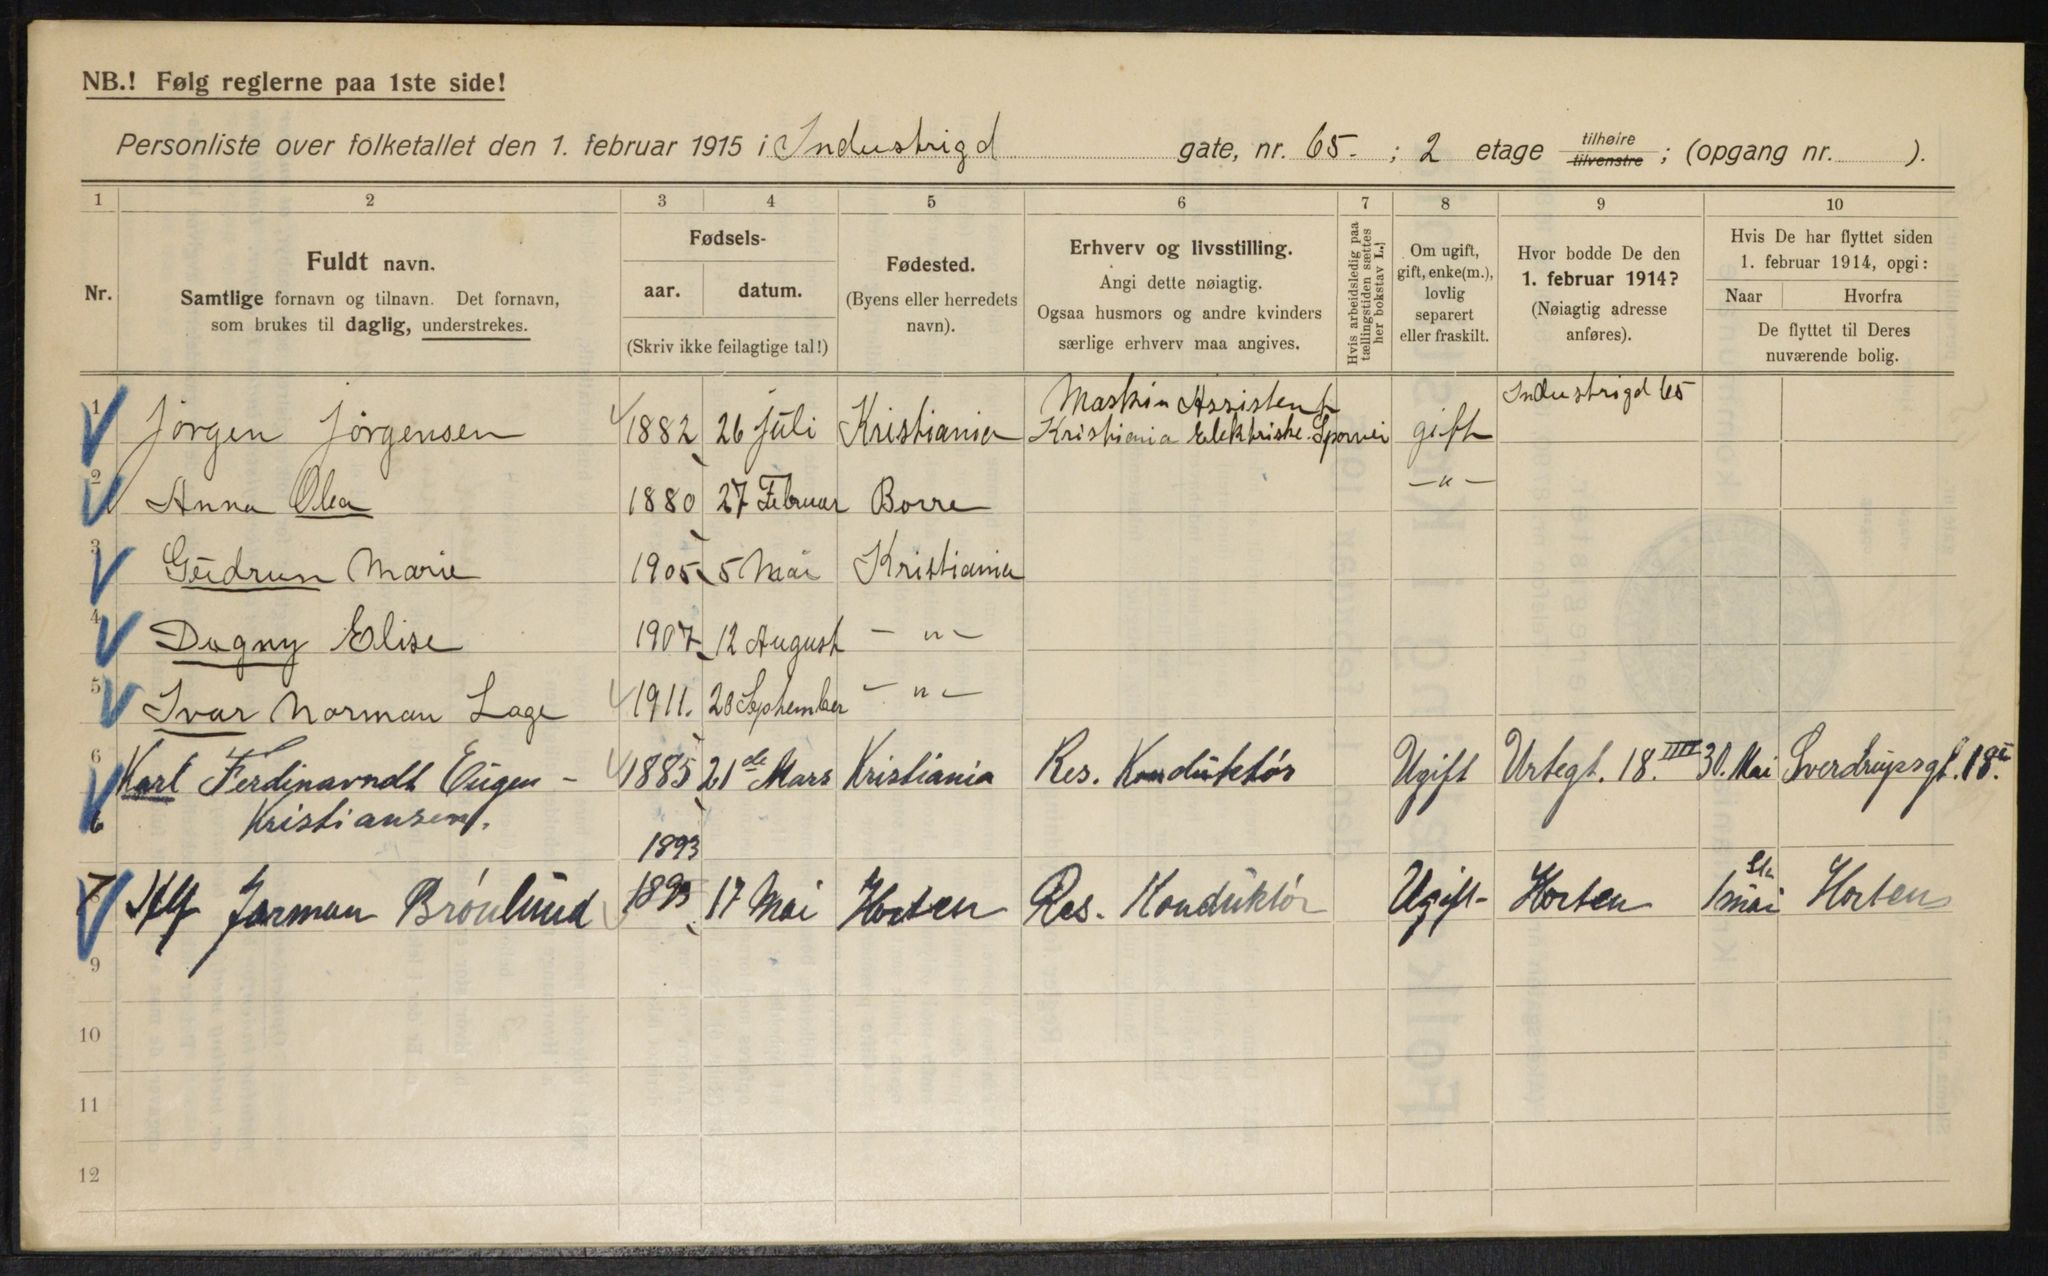 NB.! Følg reglerne paa 1ste side!
Personliste over folketallet den 1. februar 1915 i Industrigd gate, nr. 65. ; 2 etage tilhøire tilvenstre ; (opgang nr. ).
1 2 3 4 5 6 7 8 9 10
Nr.
Fuldt navn.
Samtlige fornavn og tilnavn. Det fornavn,
som brukes til daglig, understrekes.
Fødsels-
aar. datum.
(Skriv ikke feilagtige tal!)
Fødested.
(Byens eller herredets
navn).
Erhverv og livsstilling.
Angi dette nøiagtig.
Ogsaa husmors og andre kvinders
særlige erhverv maa angives.
Hvis arbeidsledig paa
tællingstiden sættes
her bokstav L.)
Om ugift,
gift, enke(m.),
lovlig
separert
eller fraskilt.
Hvor bodde De den
1. februar 1914?
(Nøiagtig adresse
anføres).
Hvis De har flyttet siden
1. februar 1914, opgi:
Naar Hvorfra
De flyttet til Deres
nuværende bolig.
Maskin Assistent Industrigd 65
1 Jörgen Jörgensen 1882 26 Juli Kristiania Kristiania Elektriske Sporvei gift
2 Anna Olea 1880 27 Februar Borre —"—
3 Gudrun Marie 1905 5 Mai Kristiania
4 Dagny Elise 1907 12 August —"—
5 Ivar Norman Lage 1911. 28 September —"—
6 Karl Ferdinavndt Eugen - 1885 21de Mars Kristiania Res. Konduktör Ugift Urtegt. 18. IIII 30. Mai Sverdrupsgt. 18.
6 Kristiansen.
1893
7 Alf Jarman Brönlund 1893 17 Mai Horten Res. Konduktör Ugift- Horten 1ste mai Horten
9
10
11
12